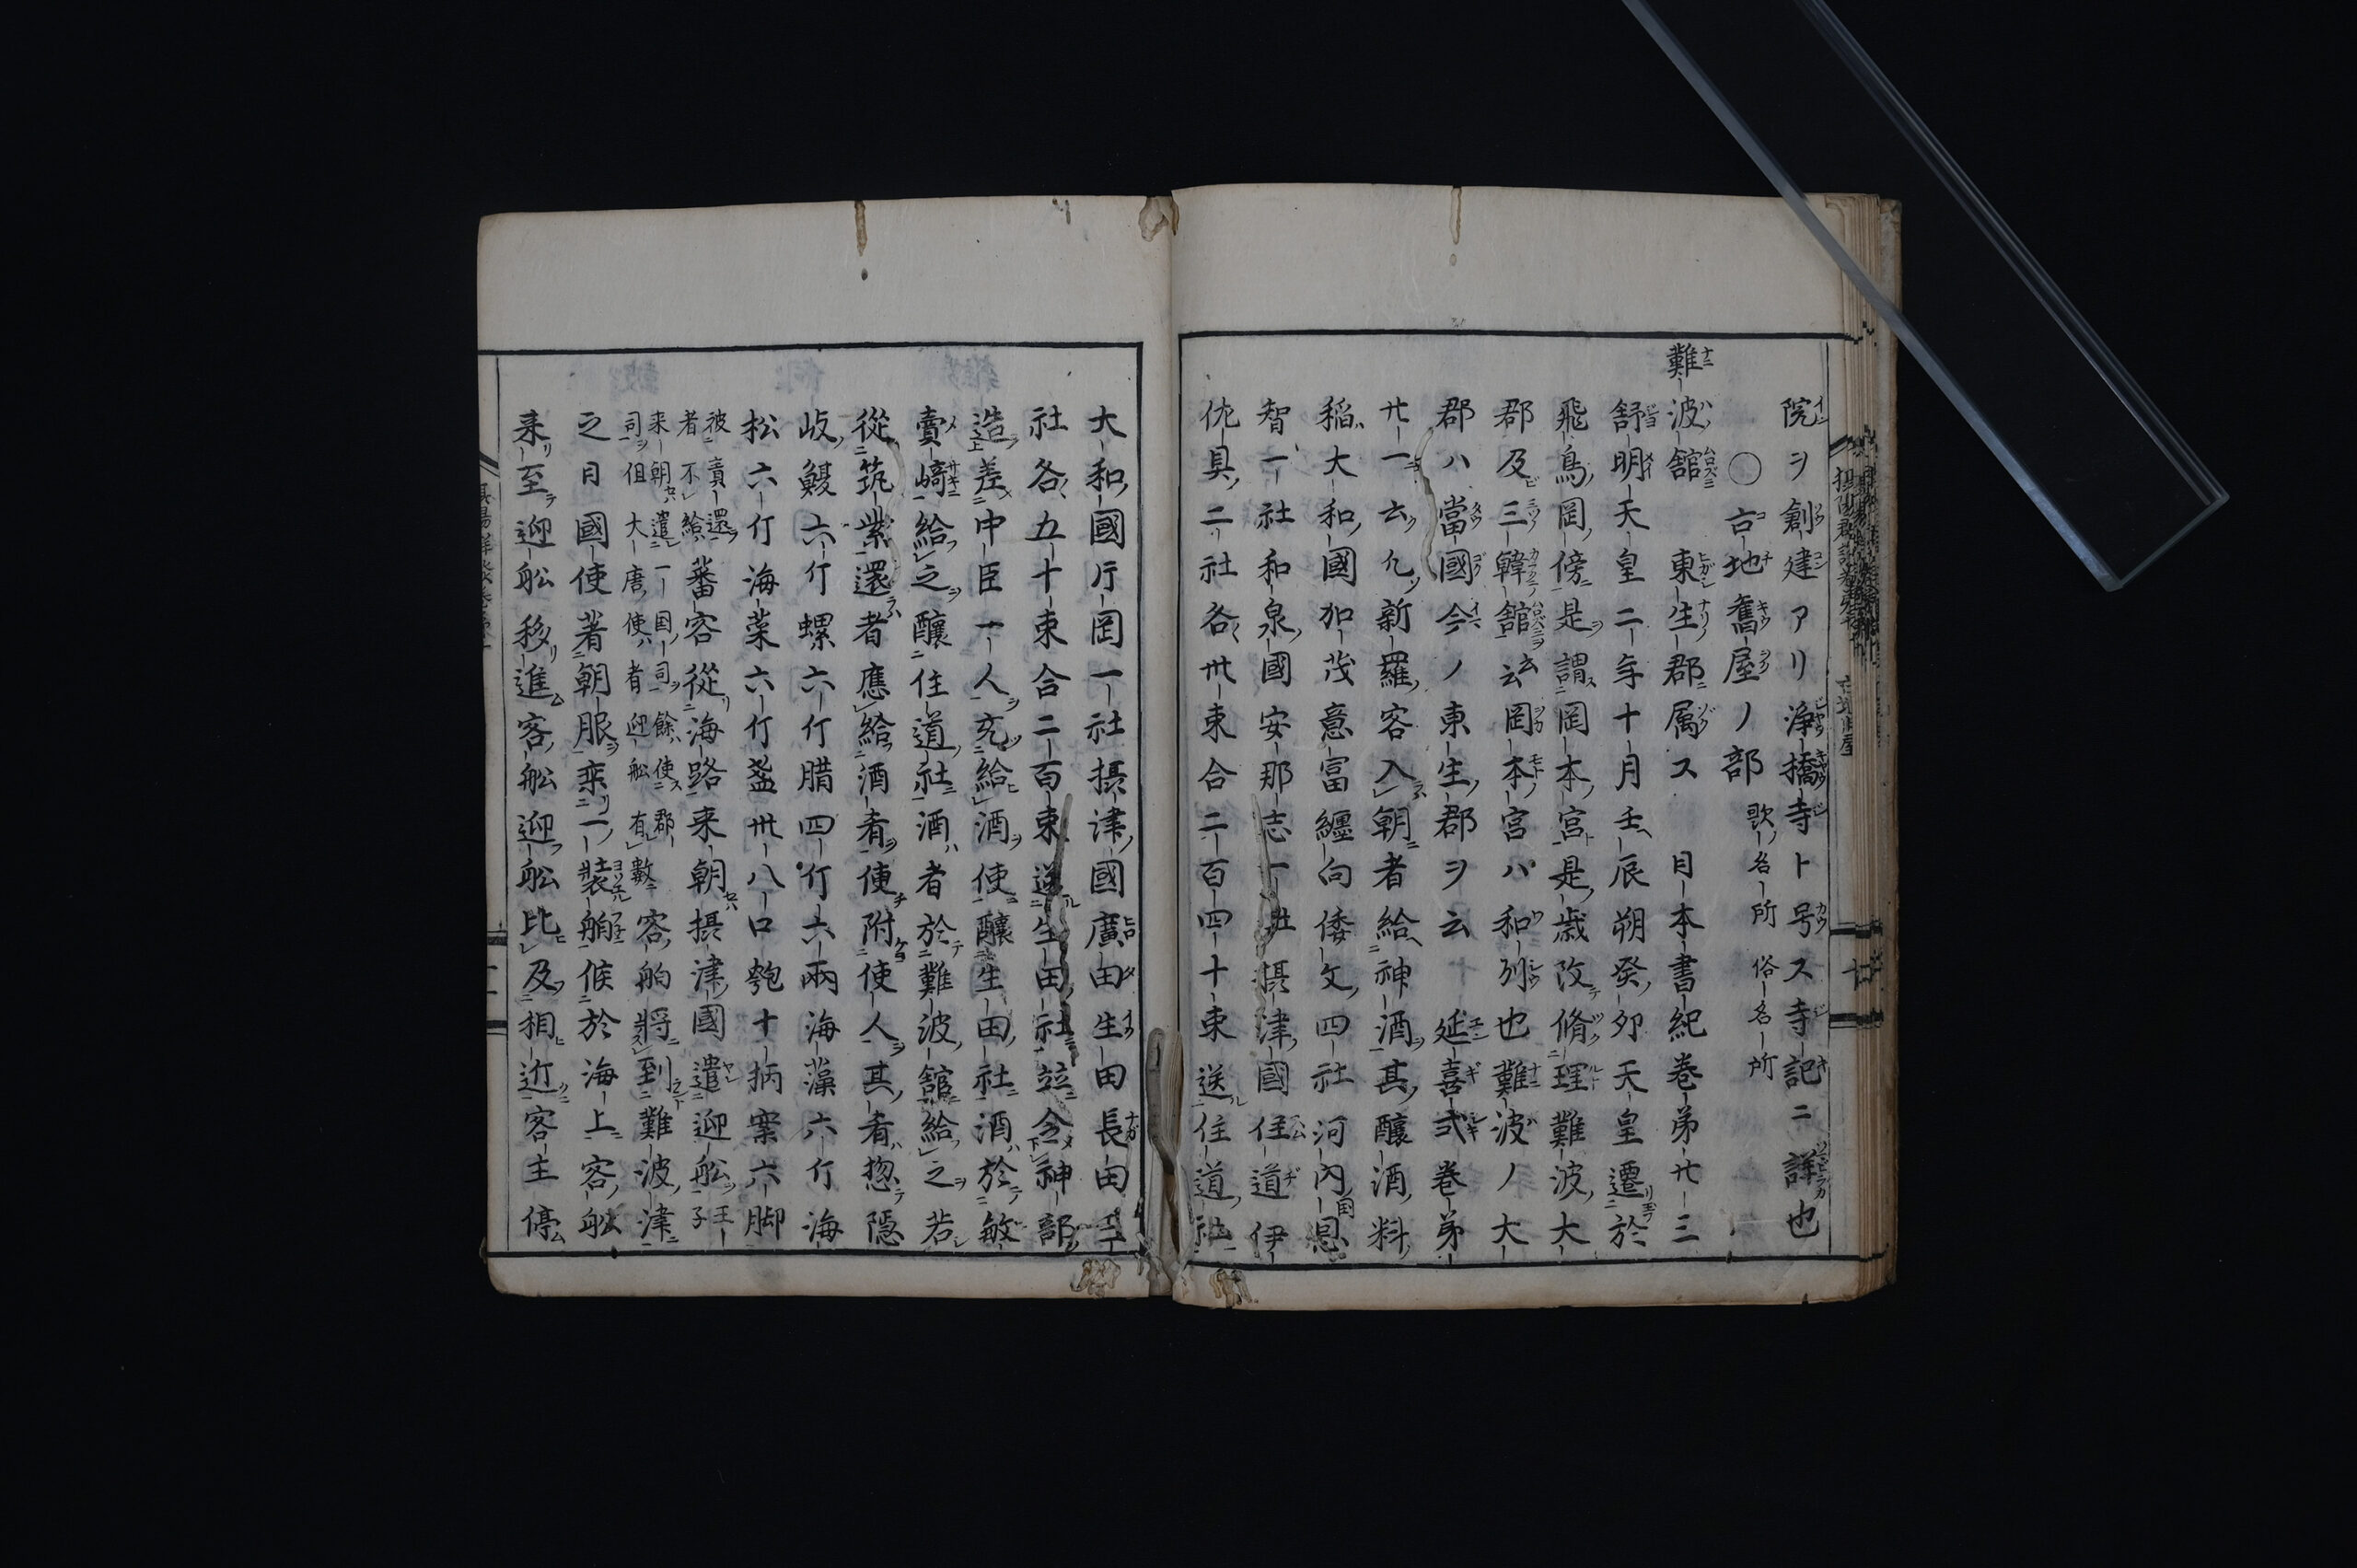 院ヲ創建アリ浄橋寺ト号ス寺記ニ詳也
〇古地舊屋ノ部 歌名所 俗名所
難波舘 東生郡ニ属ス 日本書紀巻第廿三
舒明天皇二年十月壬辰朔癸卯天皇遷於
飛鳥岡傍是謂岡本宮是歳改脩理難波大
郡及三韓舘云云岡本ノ宮ハ和列也難波ノ大
郡ハ當國今ノ東生郡ヲ云 延喜式巻第
廿一云凡新羅客入朝者給神酒其醸酒料
稲大和國加茂意富纏向倭文四社河內國恩
智一社和泉國安那志一社摂津國住道伊
佐具二社各卅束合二百四十束送住道社
大和國片岡一社摂津國廣田生田長田三
社各五十束合二百束送生田社並令神部
造差中臣一人充給酒使釀生田社酒於敏
賣﨑給之釀住道社酒者於難波舘給之若
從筑紫還者應給酒肴便附使人其肴惣隠
岐鰒六斤螺六斤腊四斤六兩海藻六斤海
松六斤海菜六斤盞卅八口匏十柄案六脚
彼ニ賣還者不給 蕃客從海路来朝摂津國遣迎舩 王子
来朝遣一国司餘使郡司但大唐使者迎舩有數 客舶將到難波津
之日國使著朝服乘一装舩候於海上客舩
来至迎舩移進客舩迎舩比及相近客主停